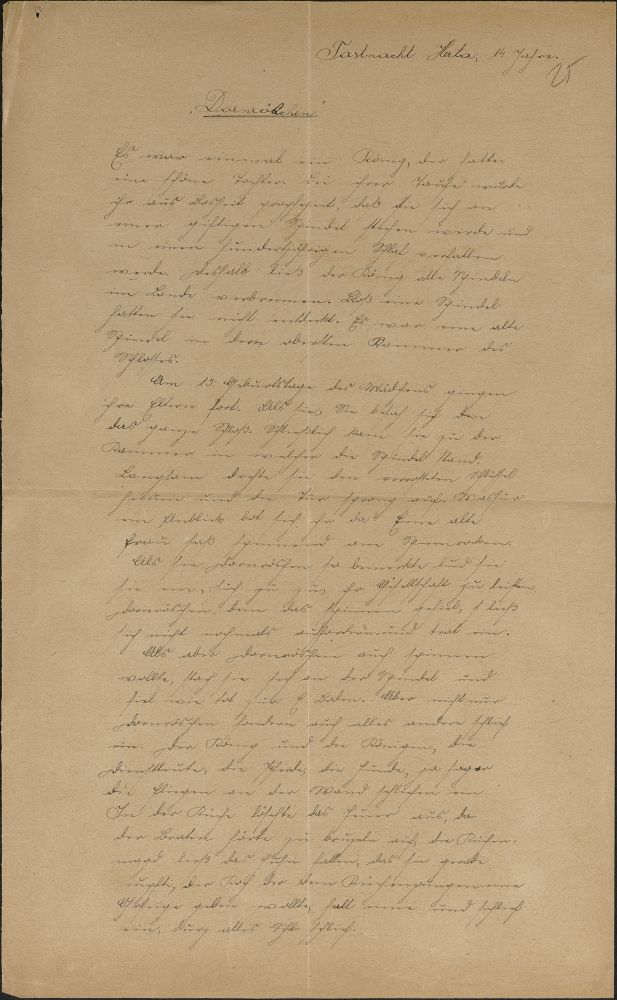 Fastnacht Herta, 14 Jahre.
25
"Dornröschen"
Es war einmal ein König, der hatte
eine schöne Tochter. Bei ihrer Taufe wurde
ihr aus Bosheit prophezeit, daß die sich an
einer giftigen Spindel stechen werde und
in einen hundertjährigen Schlaf verfallen
werde. Deshalb ließ der König alle Spindeln
im Lande verbrennen. Bloß eine Spindel
hatten sie nicht entdeckt. Es war eine alte
Spindel in dem obersten Kammer des
Schlosses.
Am 15 Geburtstage des Mädchens gingen
ihre Eltern fort. Als sie, Sie besah sich den
das ganze Schloß. Schließlich kam sie zu der
Kammer in welcher die Spindel stand.
Langsam drehte sie den verrosteten Schlüssel
herum und die Tür sprang auf. Was für
ein Anblick bot sich ihr da? Eine alte
Frau saß spinnend am Spinnrocken.
Als sie Dornröschen so bemerkte lud sie
sie ein, sich zu ihr Gesellschaft zu leisten.
Dornröschen, dem das Spinnen gefiel, ließ
sich nicht nochmals auffordern und trat ein.
Als aber Dornröschen auch spinnen
wollte, stach sie sich an der Spindel und
fiel wie tot zu Boden. Aber nicht nur
Dornröschen sondern auch alles andere schlief
ein. Der König und die Königin, die
Dienstleute, die Pferde, die Hunde, ja sogar
die Fliegen an der Wand schliefen ein.
In der Küche löschte das Feuer aus, da
der Braten hörte zu brutzeln auf, die Küchen-
magd ließ das Huhn fallen, das sie gerade
rupfte, der Koch der dem Küchenjungen eine
Ohrfeige geben wollte, hielt inne und schlief
ein, kurz alles schlief.